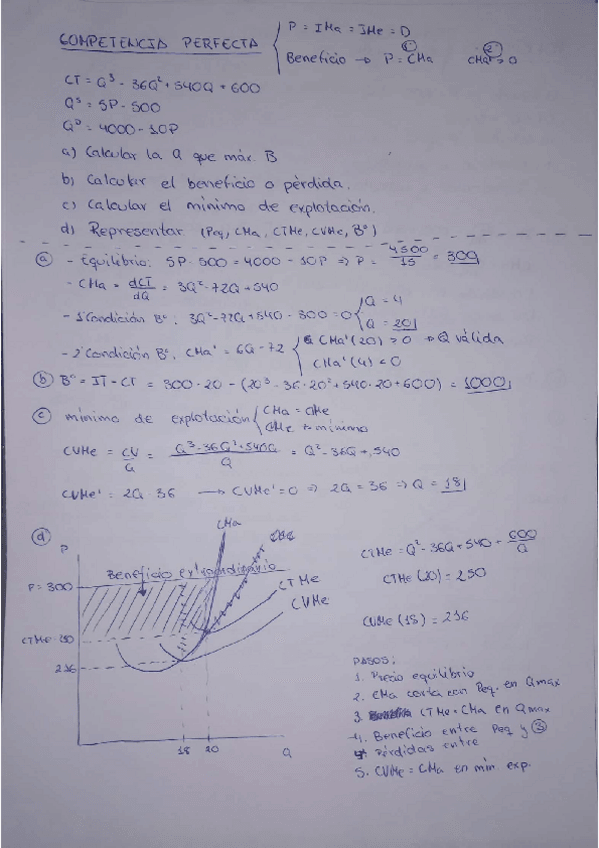 COMPETENCIA PERFECTA { P = IMa = IMe = D
Beneficio → P = CMa ① CMa' > 0 ②
CT = Q³ - 36Q² + 540Q + 600
Qˢ = 5P - 500
Qᴰ = 4000 - 10P
a) Calcular la Q que máx. B
b) Calcular el beneficio o pérdida.
c) Calcular el mínimo de explotación.
d) Representar (Peq, CMa, CTMe, CVMe, Bº)
ⓐ - Equilibrio: 5P - 500 = 4000 - 10P ⇒ P = 4500/15 = 300
- CMa = dCT/dQ = 3Q² - 72Q + 540
- 1ªCondición Bº: 3Q² - 72Q + 540 - 300 = 0 { Q = 4
Q = 20
- 2ªCondición Bº: CMa' = 6Q - 72 { CMa'(20) > 0 → Q válida
CMa'(4) < 0
ⓑ Bº = IT - CT = 300·20 - (20³ - 36·20² + 540·20 + 600) = 1000
ⓒ mínimo de explotación { CMa = CMe
CMe = mínimo
CVMe = CV/Q = Q³ - 36Q² + 540Q / Q = Q² - 36Q + 540
CVMe' = 2Q - 36 → CVMe' = 0 ⇒ 2Q = 36 ⇒ Q = 18
ⓓ
P
CMa
Beneficio extraordinario
P = 300
CTMe
CVMe
CTMe
216
18 20 Q
CTMe = Q² - 36Q + 540 + 600/Q
CTMe (20) = 250
CVMe (18) = 216
PASOS:
1. Precio equilibrio
2. CMa corta con Peq. en Qmax
3. CTMe = CMa en Qmax
4. Beneficio entre Peq y ③
Pérdidas entre
5. CVMe = CMa en min. exp.